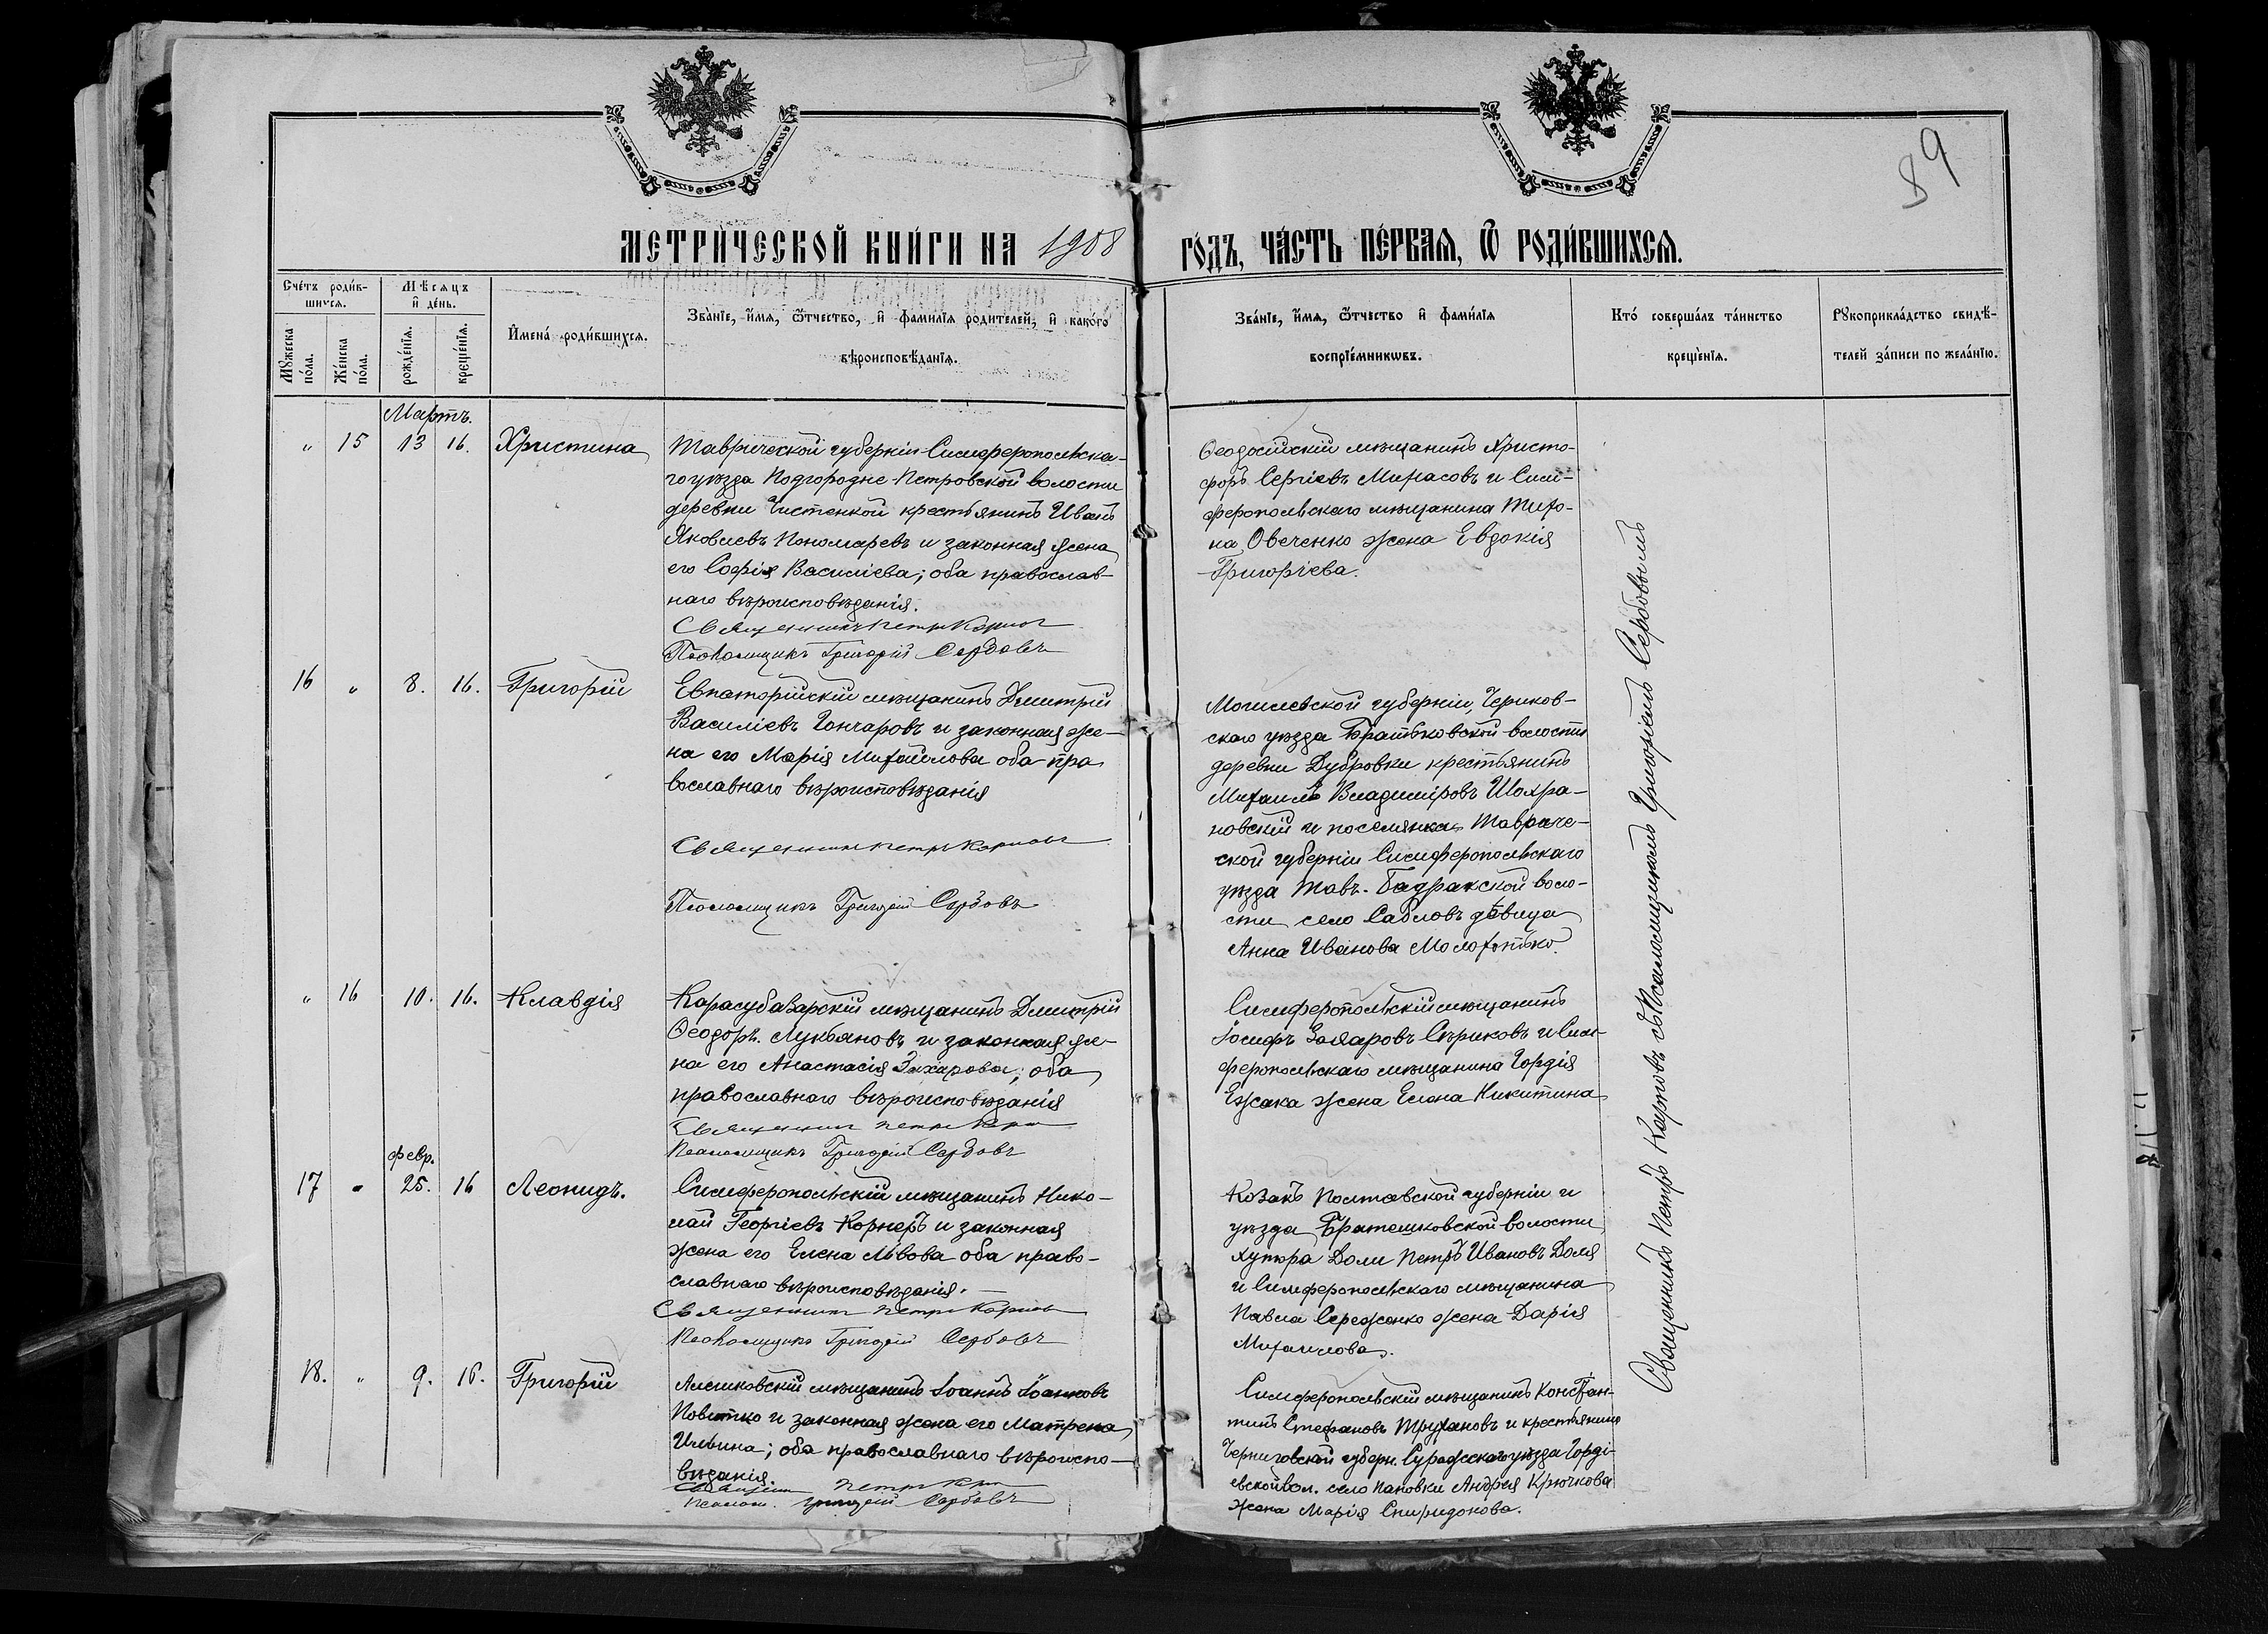 89
МЕТРИ́ЧЕСКОЙ КНИ́ГИ НА 1908 ГО́ДЪ, ЧА́СТЬ ПЕ́РВАѦ, Ѿ РОДИ́ВШИХСѦ.
Счéтъ роди́в-
шихсѧ.
Мѣсѧцъ
и҆ дéнь.
Мꙋжеска
по́ла.
Же́нска
по́ла.
рождéнїѧ.
крещéнїѧ.
И҆мена́ роди́вшихсѧ.
Зва́нїе, и҆́мѧ, ѻ҆́тчество, и҆ фами́лїѧ родителей, и҆ како́гѡ
вѣроисповѣ́данїѧ.
Зва́нїе, и҆́мѧ, ѻ҆́тчество и҆ фами́лїѧ
воспрїе́мникѡвъ.
Кто́ соверша́лъ та́инство
крещéнїѧ.
Рꙋкоприкла́дство свидѣ́-
телей за́писи по жела́нїю.
Мартъ.
„ 15 13 16. Христина
Таврической губерніи Симферопольска-
го уѣзда Подгородне-Петровской волости
деревни Чистенкой крестьянинъ Иванъ
Яковлевъ Пономаревъ и законная жена
его Софія Василіева; оба православ-
наго вѣроисповѣданія.
Священникъ Петръ Карповъ
Псаломщикъ Григорій Сербовъ
Ѳеодосійскій мѣщанинъ Христо-
форъ Сергіевъ Минасовъ и Сим-
феропольскаго мѣщанина Тихо-
на Овеченко жена Евдокія
Григоріева.
16 „ 8. 16. Григорій
Евпаторійскій мѣщанинъ Димитрій
Василіевъ Гончаровъ и законная же-
на его Марія Михайлова оба пра
вославнаго вѣроисповѣданія
Священникъ Петръ Карповъ
Псаломщикъ Григорій Сербовъ
Могилевской губерніи, Чериков-
скаго уѣзда Братьковской волости
деревни Дубровки крестьянинъ
Михаилъ Владиміровъ Шохра-
новскій и поселянка Тавриче-
ской губерніи Симферопольскаго
уѣзда Тавъ-Бадракской воло-
сти село Саблов дѣвица
Анна Иванова Молотько.
„ 16 10. 16. Клавдія
Карасубазарскій мѣщанинъ Димитрій
Ѳеодоръ. Лукьяновъ и законная же-
на его Анастасія Захарова; оба
православнаго вѣроисповѣданія
Священникъ Петръ Карповъ
Псаломщикъ Григорій Сербовъ
Симферопольскій мѣщанинъ
Іосифъ Сѣриковъ и Сим-
феропольскаго мѣщанина Гордія
Ежака жена Елена Никитина
февр.
17 „ 25. 16 Леонидъ.
Симферопольскій мѣщанинъ Нико-
лай Георгіевъ Корнеръ и законная
жена его Елена Львова оба право-
славнаго вѣроисповѣданія.
Священникъ Петръ Карповъ
Псаломщикъ Григорій Сербовъ
Козакъ Полтавской губерніи и
уѣзда Братешковской волости
хутора Доли Петръ Ивановъ Доля
и Симферопольскаго мѣщанина
Павла Середженко жена Дарія
Михаилова.
18. „ 9. 16. Григорій
Алешковскій мѣщанинъ Іоаннъ Іоанновъ
Повитко и законная жена его Матрена
Ильина; оба православнаго вѣроиспо-
вѣданія.
Священникъ Петръ Карповъ
Псалом. Григорій Сербовъ
Симферопольскій мѣщанинъ Констан-
тинъ Стефановъ Трухановъ и крестьянина
Черниговской губерн. Суражскаго уѣзда Горді-
евской вол. село Пановки Андрея Крючкова
жена Марія Спиридонова.
Священникъ Петръ Карповъ съ Псаломщикомъ Григоріемъ Сербовымъ